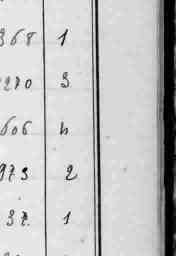 368 1
2270 3
606 h
973 2
37. 1